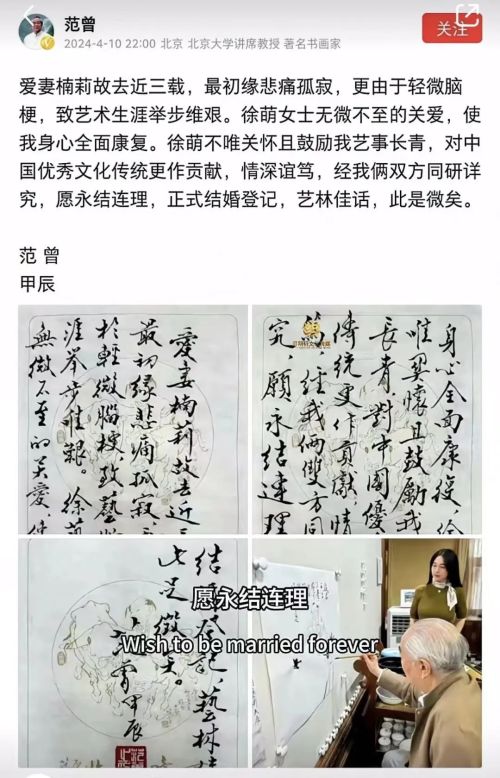 范曾
2024-4-10 22:00 北京 北京大学讲席教授 著名书画家
关注
爱妻楠莉故去近三载，最初缘悲痛孤寂，更由于轻微脑
梗，致艺术生涯举步维艰。徐萌女士无微不至的关爱，使
我身心全面康复。徐萌不唯关怀且鼓励我艺事长青，对中
国优秀文化传统更作贡献，情深谊笃，经我俩双方同研详
究，愿永结连理，正式结婚登记，艺林佳话，此是微矣。
范 曾
甲辰
愛妻楠莉故去近三
最初缘悲痛孤寂，
於輕微腦梗，致藝
涯舉步維艱。徐
無微不至的关愛，使
身心全面康復，徐
唯関懷且鼓勵我
長青，對中國優
傳統更作貢獻，情
篤，經我倆雙方同
究，願永結連理
结婚登记，藝林佳
此是微矣。
甲辰
愿永结连理
Wish to be married forever